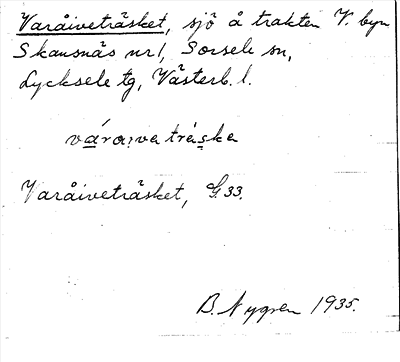 Varåiveträsket, sjö å trakten V. byn
Skansnäs nr 1, Sorsele sn,
Lycksele tg, Västerb. l.
vára⁝ve träske
Varåiveträsket, G. 33.
B. Nygren 1935.